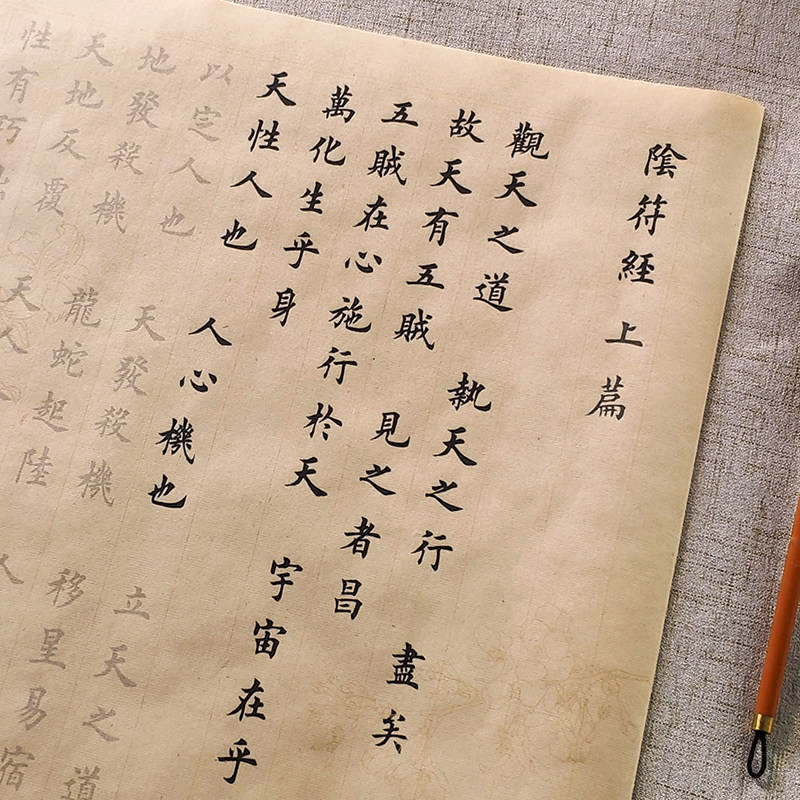 陰符經上篇
觀天之道 執天之行 盡矣
故天有五賊 見之者昌
五賊在心施行於天 宇宙在乎
萬化生乎身
天性人也 人心機也 立天之道
以定人也 天發殺機 移星易宿
地發殺機 龍蛇起陸 人
天地反覆 天人
性有巧